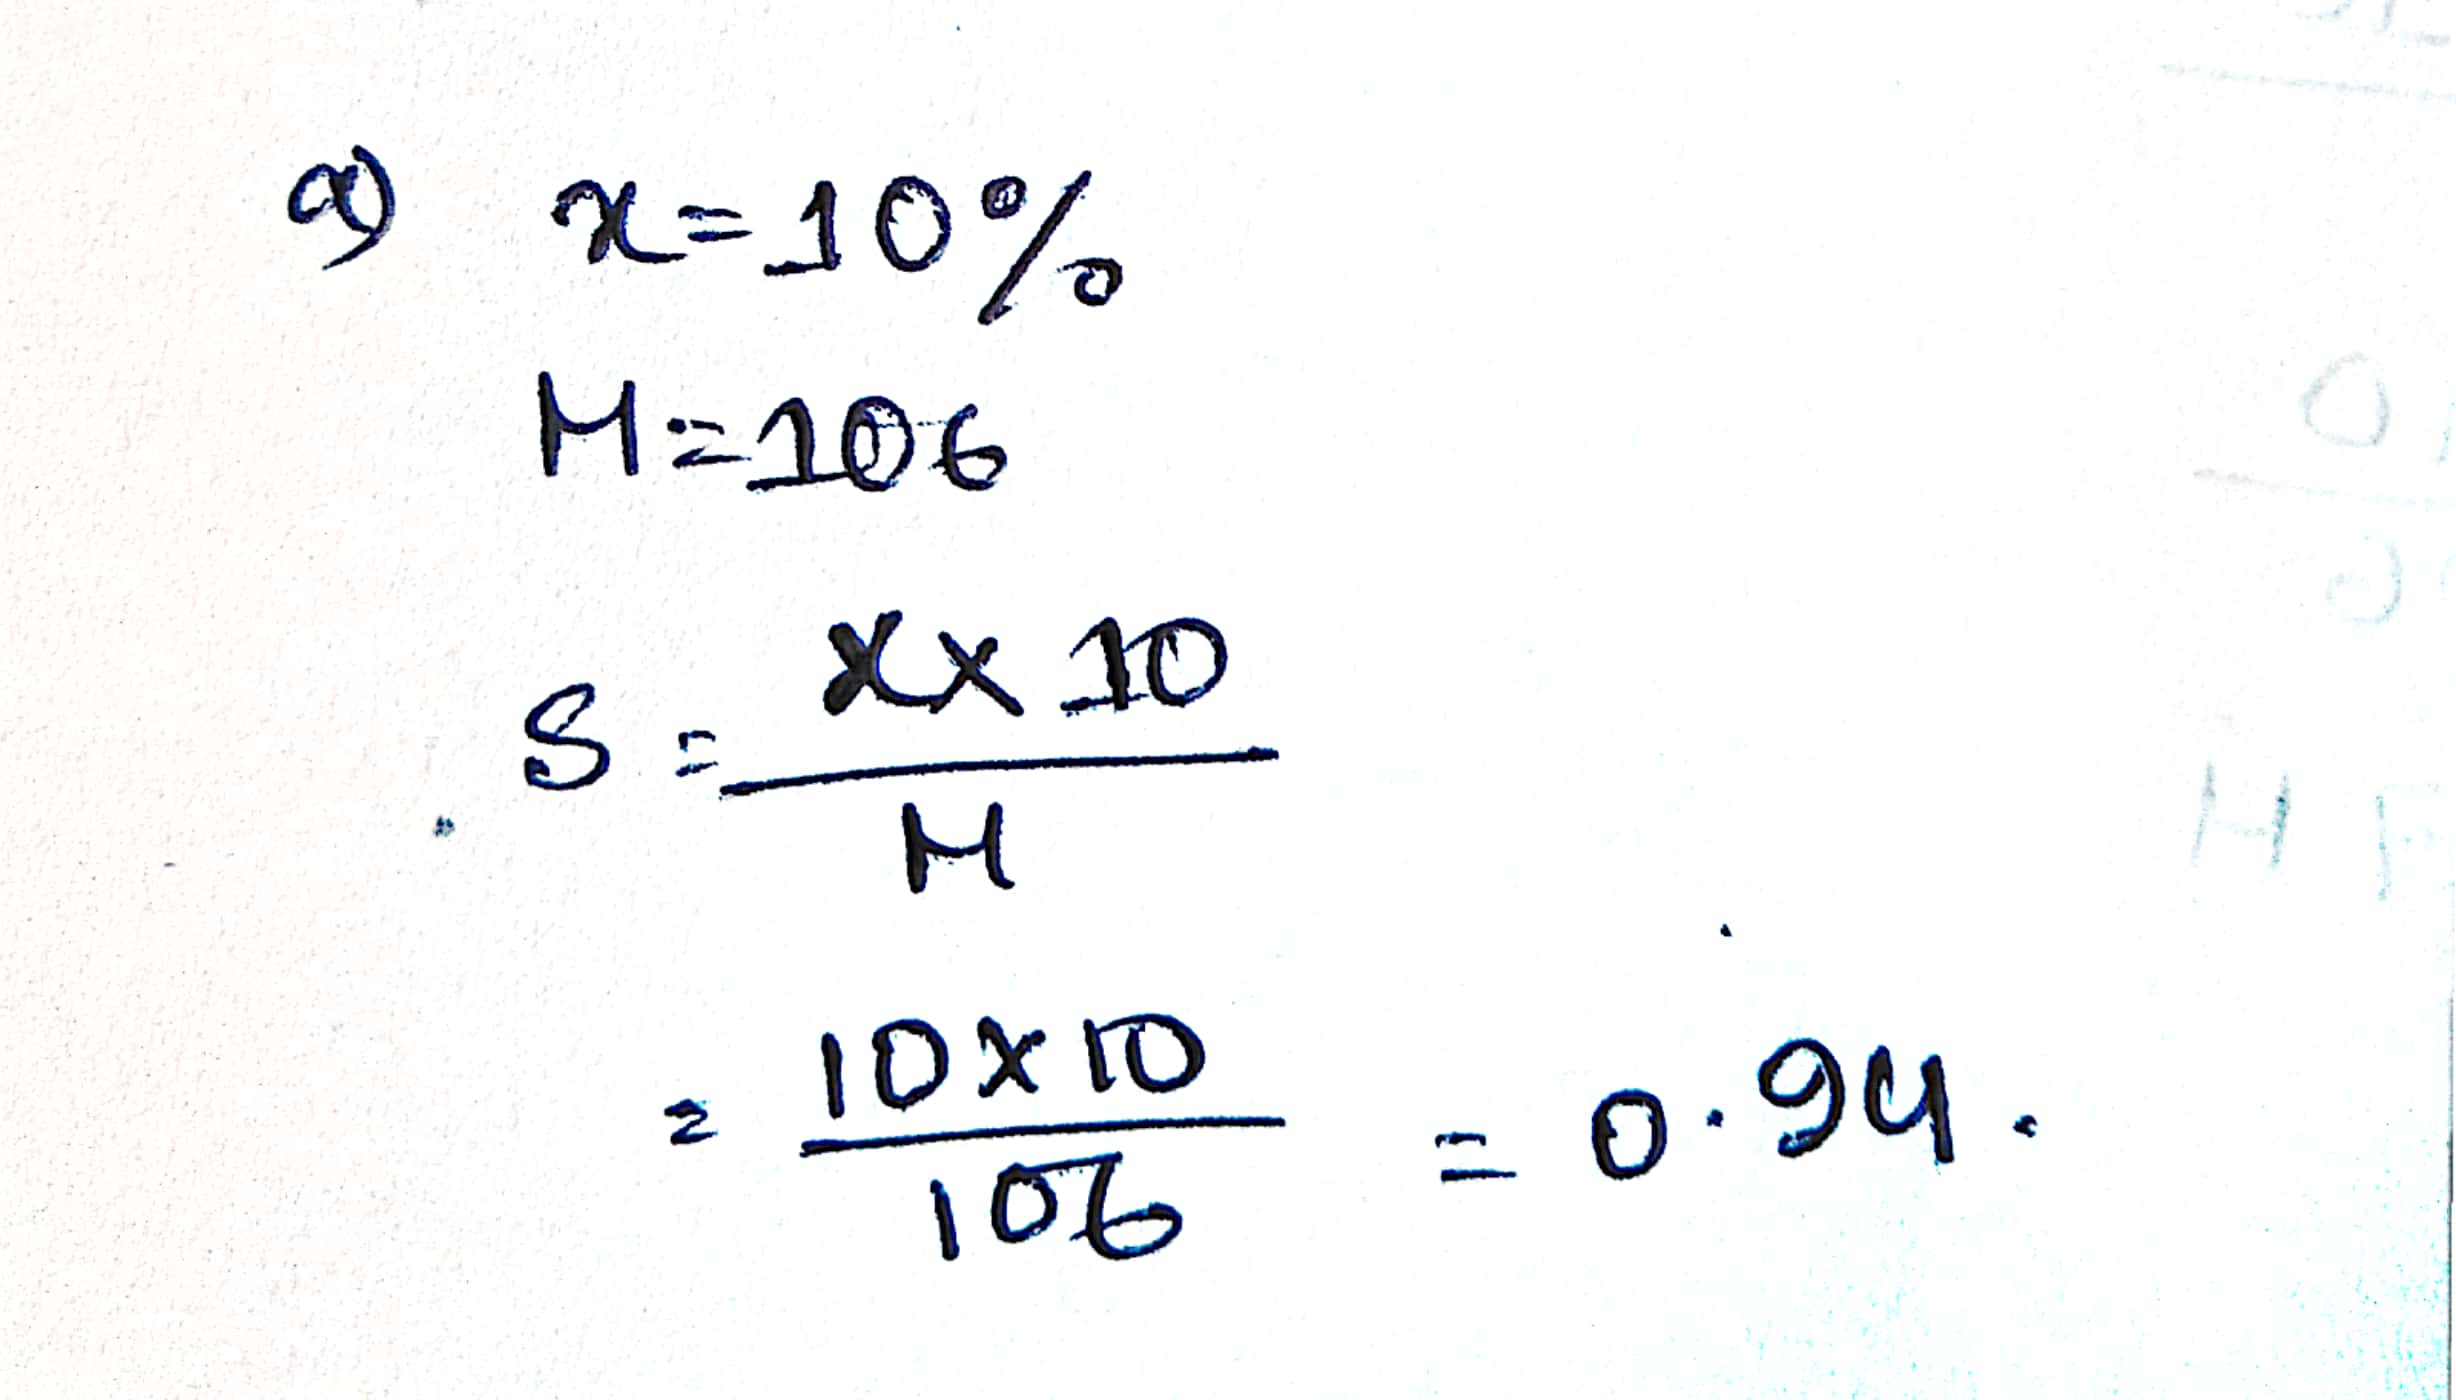 a) x=10%
M=106
S = x×10
M
= 10×10
106
= 0.94.